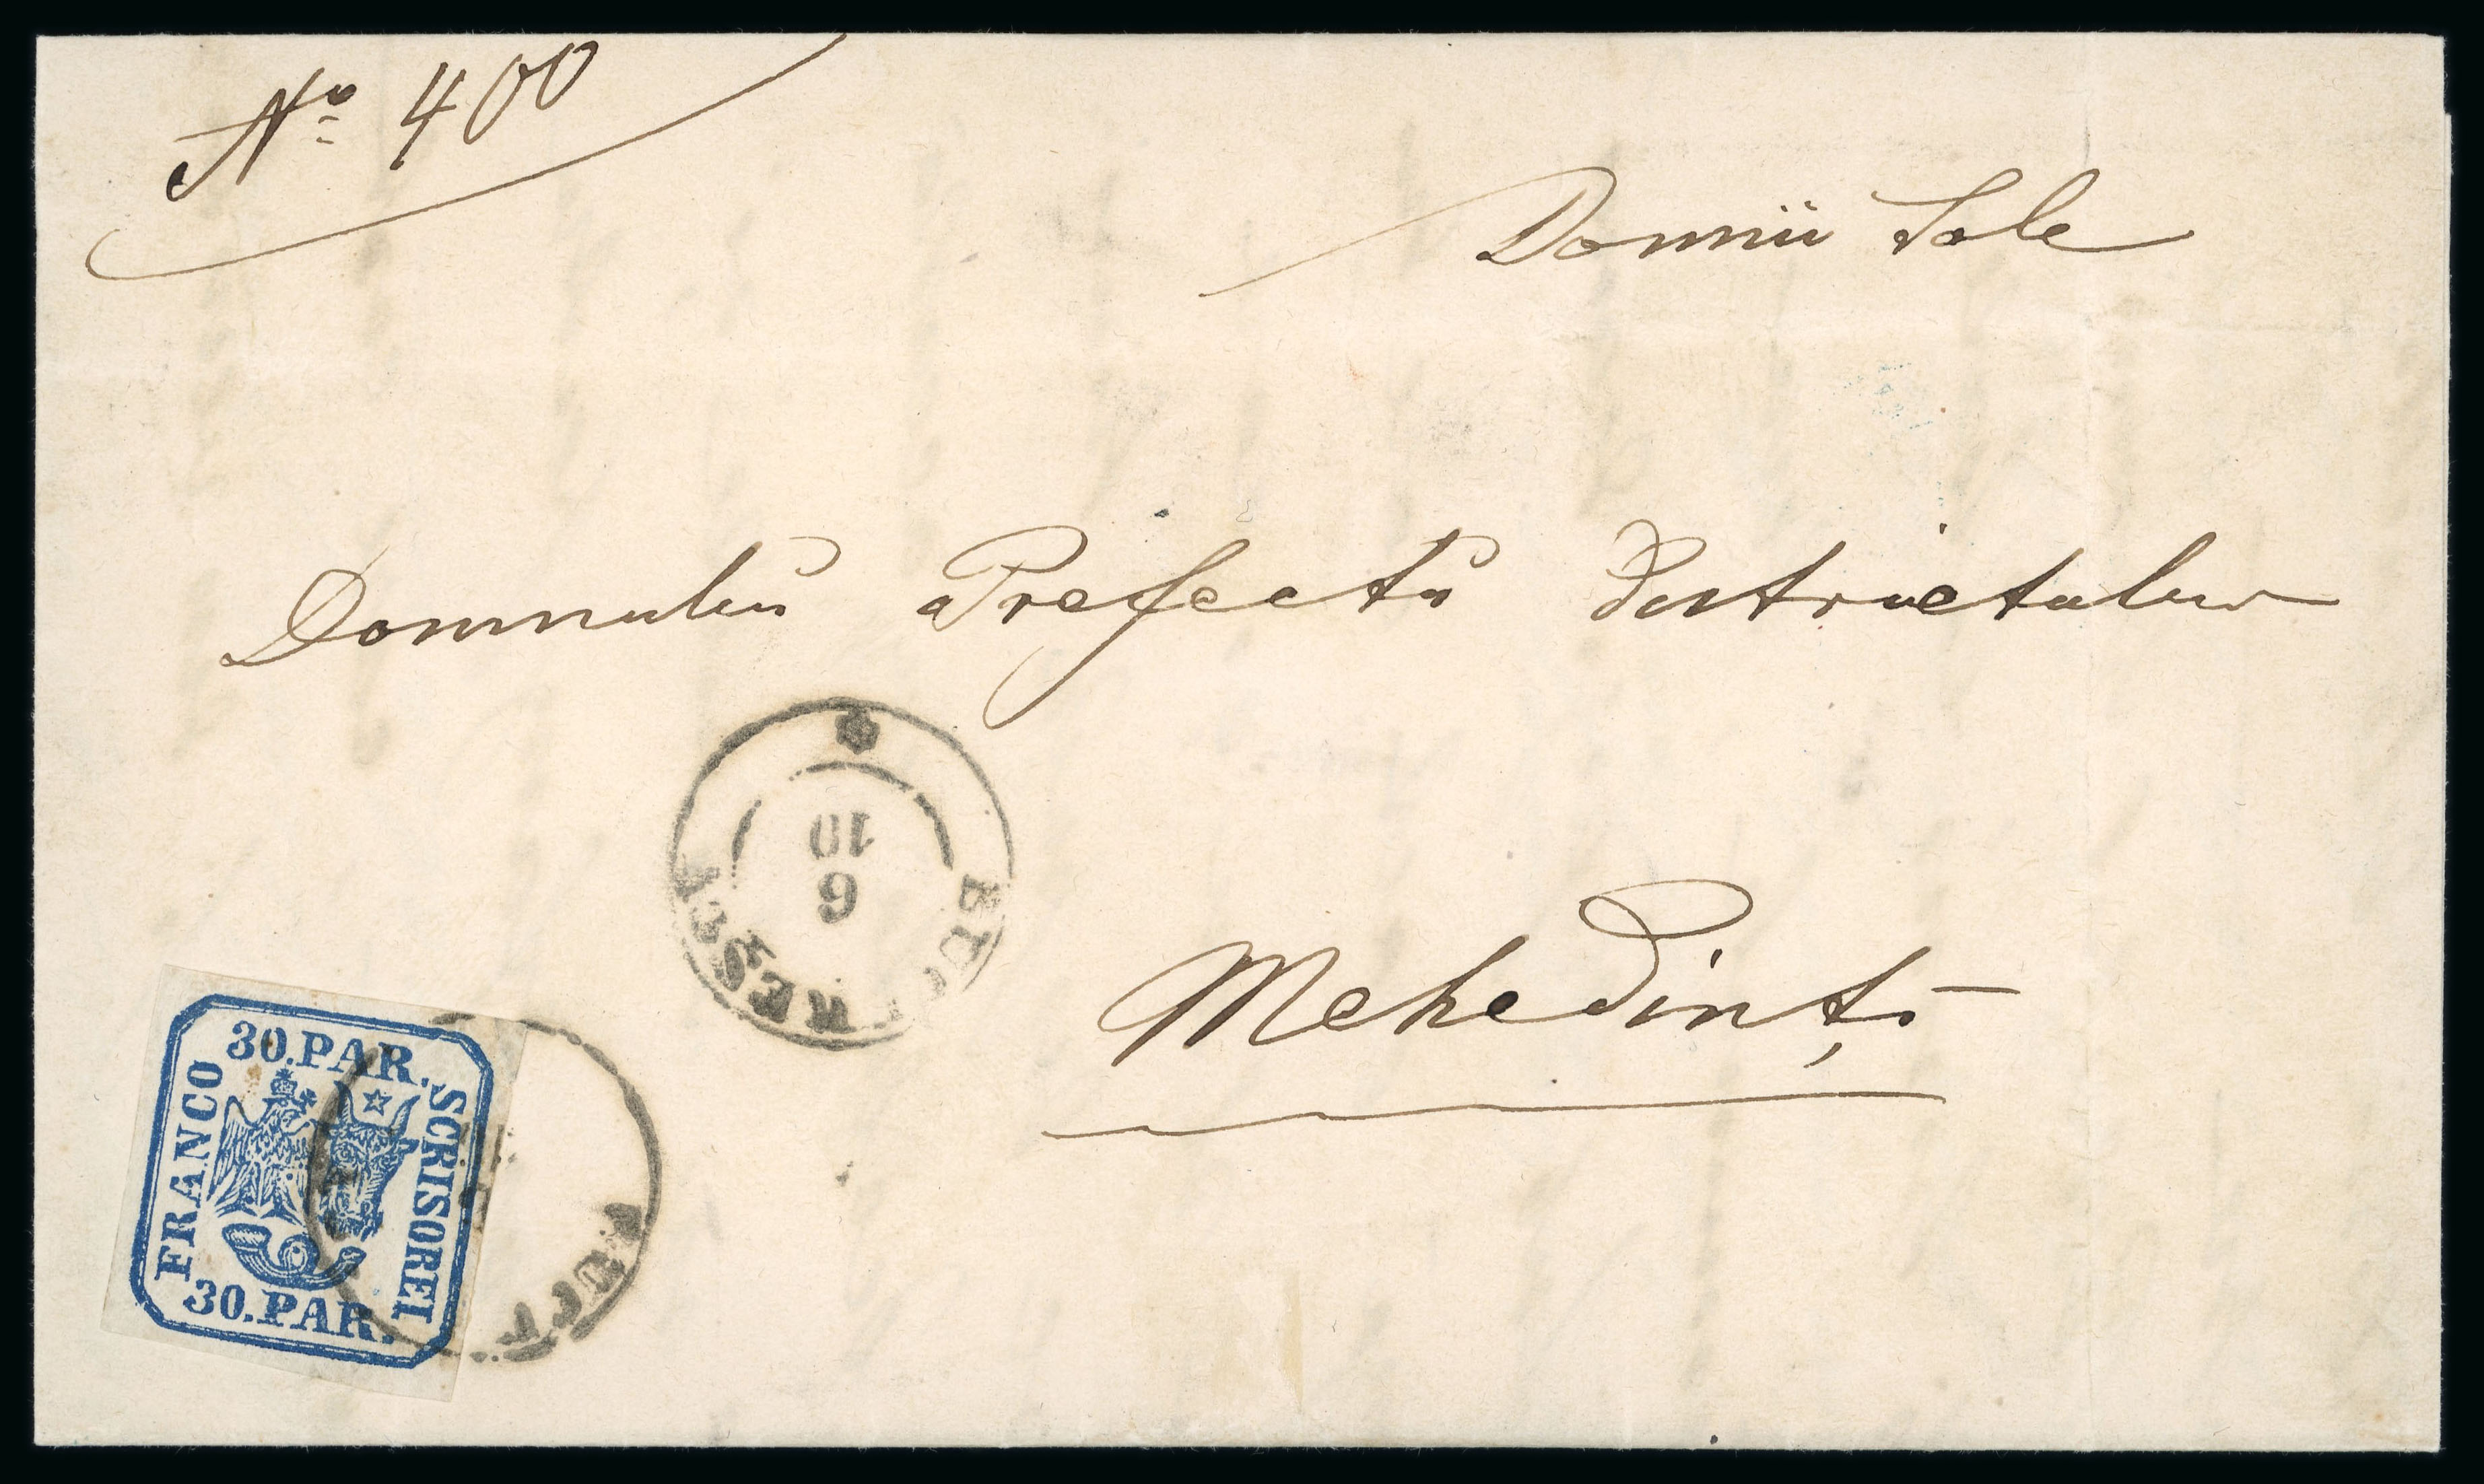 No 400
Domnii Sale
Domnului Prefectu Districtului
Mehedinți
BUCURESCI
10
6
30.PAR.
FRANCO
SCRISOREI
30.PAR.